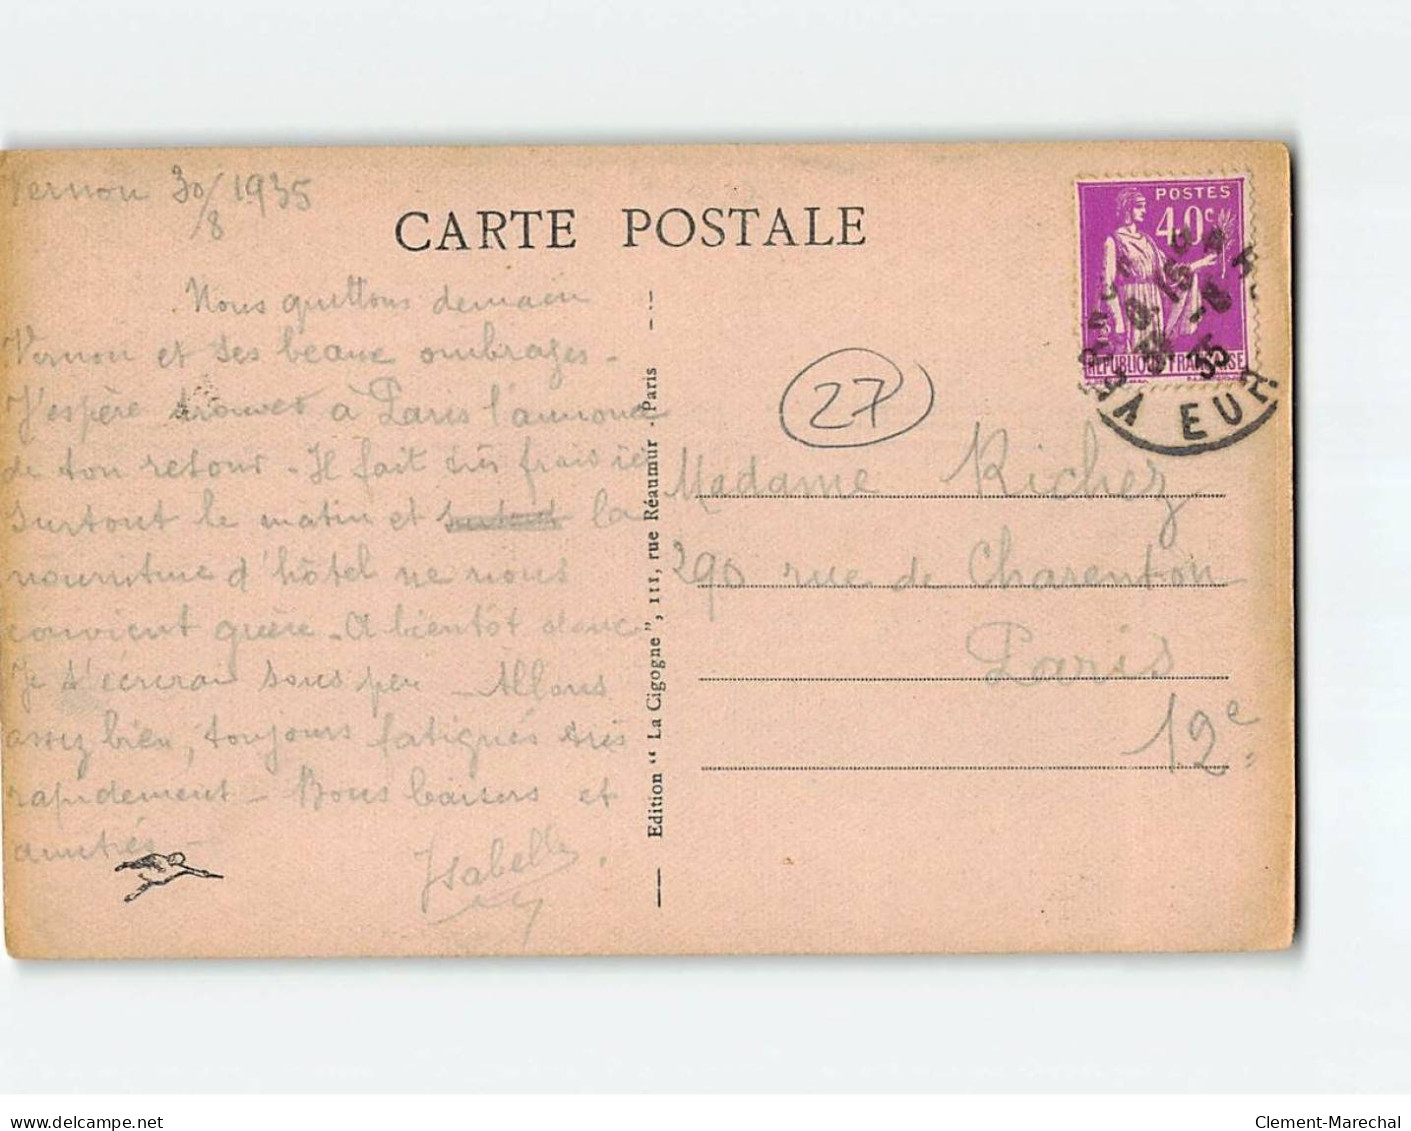 Vernon 30/8 1935
CARTE POSTALE
Nous quittons demain
Vernon et ses beaux ombrages -
J'espère trouver à Paris l'annonce
de ton retour - Il fait très frais ici
surtout le matin et la
nourriture d'hôtel ne nous
convient guère - A bientôt donc
Je t'écrirai sous peu - Allons
assez bien, toujours fatigués très
rapidement - Bons baisers et
amitiés -
Isabelle.
Edition " La Cigogne ", 111, rue Réaumur - Paris
POSTES
40c
REPUBLIQUE FRANÇAISE
35
EURE
27
Madame Richez
290 rue de Charenton
Paris
12e
www.delcampe.net
Clement-Marechal